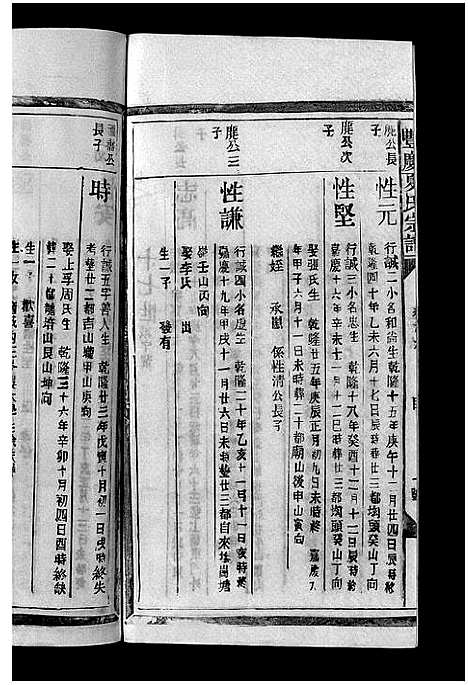 豐慶夏氏宗譜
鹿公長子
性元
行誠二小名和論生乾隆十五年庚午十二月廿四日辰時終
乾隆四十年乙未六月十七日辰時葬廿三都坳頭癸山丁向
鹿公次子
性堅
行誠三小名忠生 乾隆十八年癸酉十二月十二日辰時終
嘉慶十六年辛未十一月十二巳時葬廿三都坳頭癸山丁向
娶張氏生 乾隆廿五年庚辰正月初九日未時終 嘉慶7
年甲子六月十一日未時葬二十都廟山後申山寅向
繼姪 承鳳 係性清公長子
鹿公三子
性謙
行誠四小名虛生 乾隆二十年乙亥十一月十一日亥時終
嘉慶十九年甲戌十一月廿六日未時葬廿三都自來
壬山丙向
娶李氏 出
生一子 發有
公長子
時
行誠五字善人生 乾隆廿三年戊寅十月初一日戌時終失
考葬廿二都吉山塘甲山庚向
娶上享周氏生 乾隆三十六年辛卯十月初四日酉時終缺
培山艮山坤向
生一子 歡喜